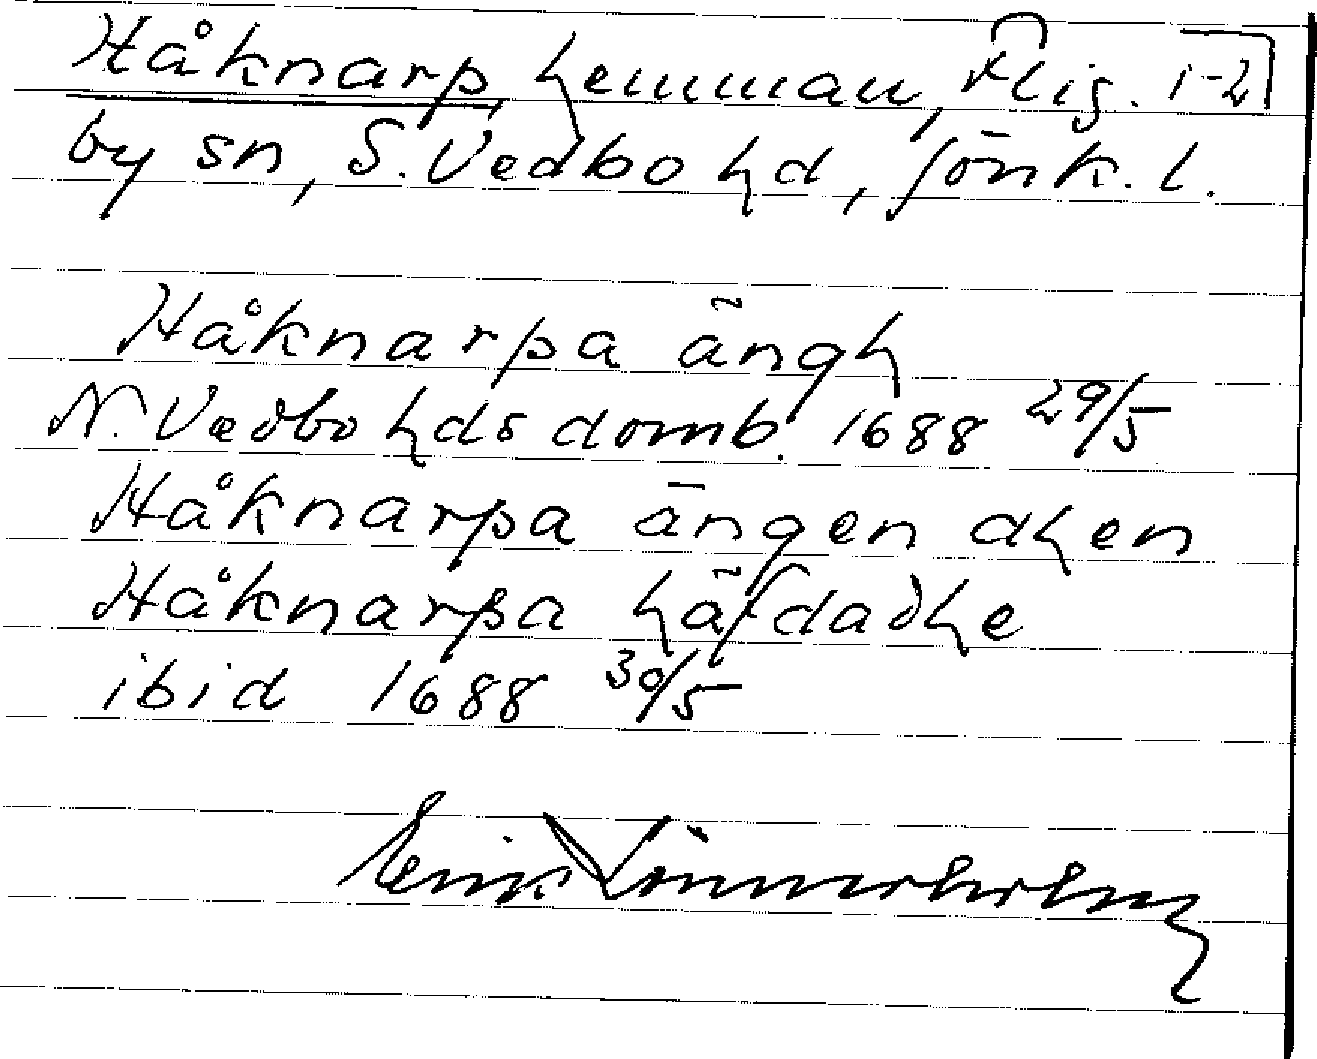 Håknarp, hemman, Flig. 1-2
by sn, S. Vedbo hd, Jönk. l.
Håknarpa ängh
N. Vedbo hds domb. 1688 29/5
Håknarpa ängen dhen
Håknarpa häfdadhe
ibid 1688 30/5
Erik Linnerholm